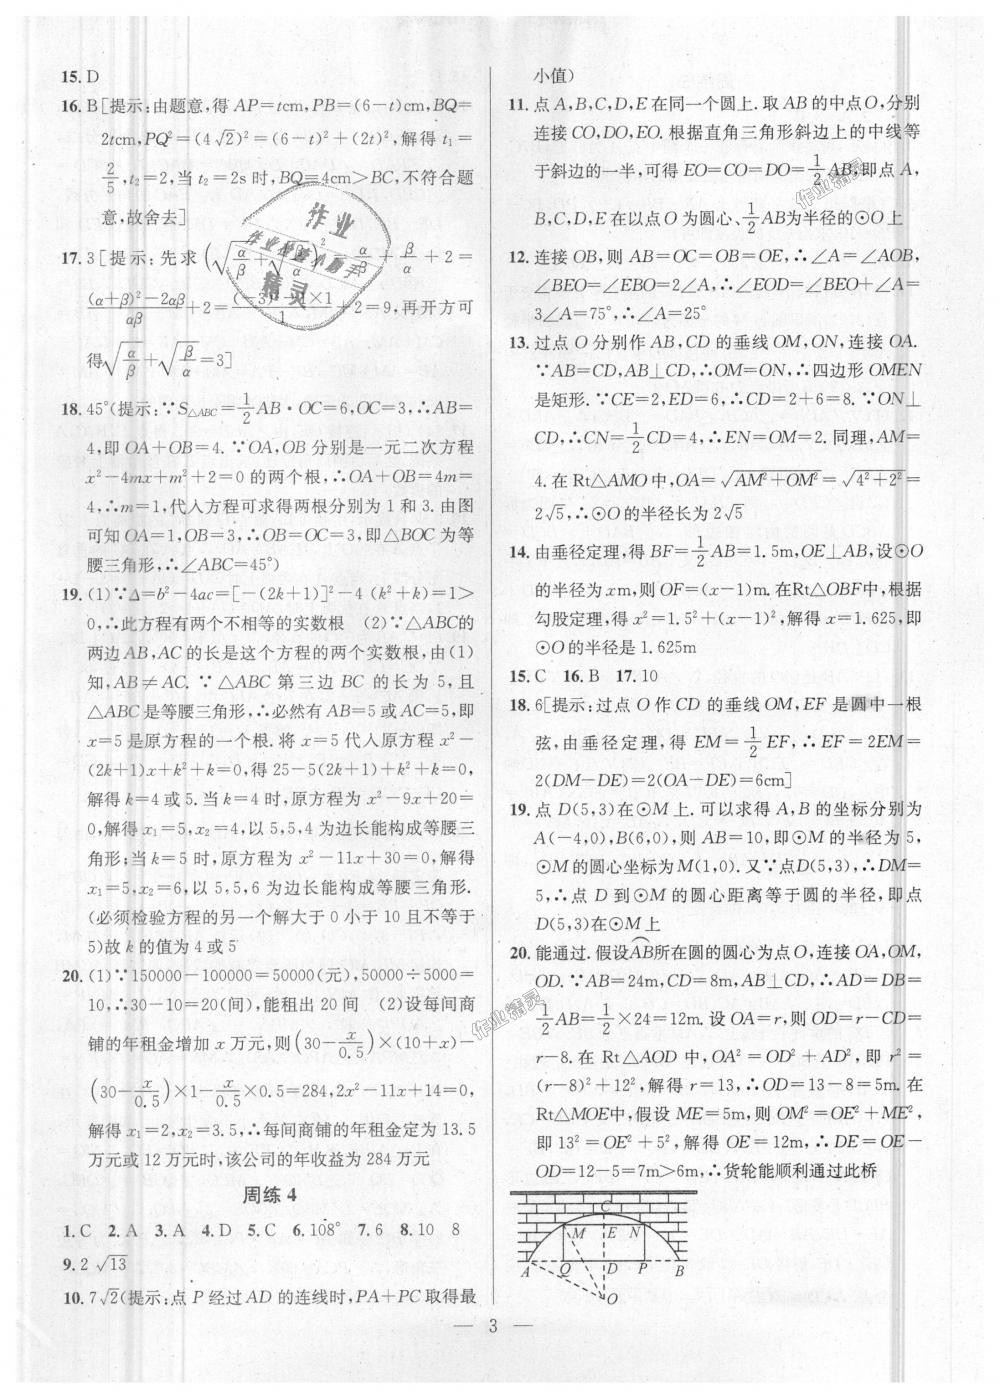 15. D
16. B[提示:由题意,得 AP=tcm,PB=(6-t)cm,BQ=
2tcm,PQ²=(4√2)²=(6-t)²+(2t)²,解得 t₁=
2/5,t₂=2,当 t₂=2s时,BQ=4cm>BC,不符合题
意,故舍去]
17. 3[提示:先求(√(α/β)+√(β/α))²=α/β+β/α+2=
((α+β)²-2αβ)/αβ+2=((-3)²-2×1)/1+2=9,再开方可
得√(α/β)+√(β/α)=3]
18. 45°(提示:∵S△ABC=1/2AB·OC=6,OC=3,∴AB=
4,即 OA+OB=4.∵OA,OB 分别是一元二次方程
x²-4mx+m²+2=0 的两个根,∴OA+OB=4m=
4,∴m=1,代入方程可求得两根分别为 1 和 3.由图
可知 OA=1,OB=3,∴OB=OC=3,即△BOC 为等
腰三角形,∴∠ABC=45°)
19. (1)∵Δ=b²-4ac=[-(2k+1)]²-4(k²+k)=1>
0,∴此方程有两个不相等的实数根 (2)∵△ABC的
两边AB,AC的长是这个方程的两个实数根,由(1)
知,AB≠AC.∵△ABC 第三边 BC 的长为 5,且
△ABC是等腰三角形,∴必然有AB=5或AC=5,即
x=5是原方程的一个根.将 x=5代入原方程 x²-
(2k+1)x+k²+k=0,得 25-5(2k+1)+k²+k=0,
解得k=4或5.当k=4时,原方程为 x²-9x+20=
0,解得 x₁=5,x₂=4,以 5,5,4 为边长能构成等腰三
角形;当 k=5 时,原方程为 x²-11x+30=0,解得
x₁=5,x₂=6,以 5,5,6 为边长能构成等腰三角形.
(必须检验方程的另一个解大于 0 小于 10 且不等于
5)故 k 的值为 4 或 5
20. (1)∵150000-100000=50000(元),50000÷5000=
10,∴30-10=20(间),能租出 20 间 (2)设每间商
铺的年租金增加 x 万元,则(30-x/0.5)×(10+x)-
(30-x/0.5)×1-x/0.5×0.5=284,2x²-11x+14=0,
解得 x₁=2,x₂=3.5,∴每间商铺的年租金定为 13.5
万元或 12 万元时,该公司的年收益为 284 万元
周练 4
1. C 2. A 3. A 4. D 5. C 6. 108° 7. 6 8. 10 8
9. 2√13
10. 7√2(提示:点 P 经过 AD 的连线时,PA+PC取得最
小值)
11. 点 A,B,C,D,E 在同一个圆上.取 AB 的中点O,分别
连接 CO,DO,EO.根据直角三角形斜边上的中线等
于斜边的一半,可得 EO=CO=DO=1/2AB,即点 A,
B,C,D,E在以点 O 为圆心、1/2AB为半径的⊙O 上
12. 连接 OB,则 AB=OC=OB=OE,∴∠A=∠AOB,
∠BEO=∠EBO=2∠A,∴∠EOD=∠BEO+∠A=
3∠A=75°,∴∠A=25°
13. 过点 O 分别作 AB,CD 的垂线 OM,ON,连接 OA.
∵AB=CD,AB⊥CD,∴OM=ON,∴四边形 OMEN
是矩形.∵CE=2,ED=6,∴CD=2+6=8.∵ON⊥
CD,∴CN=1/2CD=4,∴EN=OM=2.同理,AM=
4.在Rt△AMO中,OA=√(AM²+OM²)=√(4²+2²)=
2√5,∴⊙O 的半径长为 2√5
14. 由垂径定理,得 BF=1/2AB=1.5m,OE⊥AB,设⊙O
的半径为xm,则 OF=(x-1)m.在Rt△OBF中,根据
勾股定理,得 x²=1.5²+(x-1)²,解得 x=1.625,即
⊙O的半径是 1.625m
15. C 16. B 17. 10
18. 6[提示:过点 O 作 CD 的垂线 OM,EF 是圆中一根
弦,由垂径定理,得 EM=1/2EF,∴EF=2EM=
2(DM-DE)=2(OA-DE)=6cm]
19. 点 D(5,3)在⊙M 上.可以求得 A,B 的坐标分别为
A(-4,0),B(6,0),则 AB=10,即⊙M 的半径为 5,
⊙M的圆心坐标为M(1,0).又∵点D(5,3),∴DM=
5,∴点 D 到⊙M 的圆心距离等于圆的半径,即点
D(5,3)在⊙M上
20. 能通过.假设A͡B所在圆的圆心为点O,连接 OA,OM,
OD.∵AB=24m,CD=8m,AB⊥CD,∴AD=DB=
1/2AB=1/2×24=12m.设 OA=r,则 OD=r-CD=
r-8.在 Rt△AOD 中,OA²=OD²+AD²,即 r²=
(r-8)²+12²,解得 r=13,∴OD=13-8=5m.在
Rt△MOE中,假设 ME=5m,则 OM²=OE²+ME²,
即 13²=OE²+5²,解得 OE=12m,∴DE=OE-
OD=12-5=7m>6m,∴货轮能顺利通过此桥
C
M E N
A Q D P B
O
3
作业
作业检查小助手
精灵
作业精灵
作业精灵